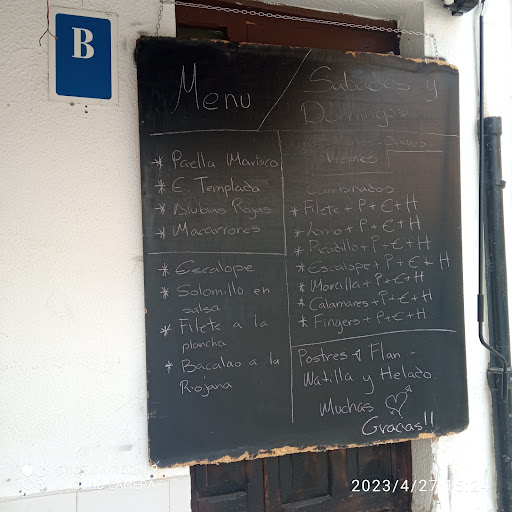 B
Menu / Sabados y
Domingos
* Paella Marisco
* E. Templada
* Alubias Rojas
* Macarrones
* Escalope
* Solomillo en
salsa
* Filete a la
plancha
* Bacalao a la
Riojana
Viernes
Combinados
* Filete + P + C + H
* Lomo + P + C + H
* Picadillo + P + C + H
* Escalope + P + C + H
* Morcilla + P + C + H
* Calamares + P + C + H
* Fingers + P + C + H
Postres Flan -
Natilla y Helado
Muchas
Gracias!!
2023/4/27